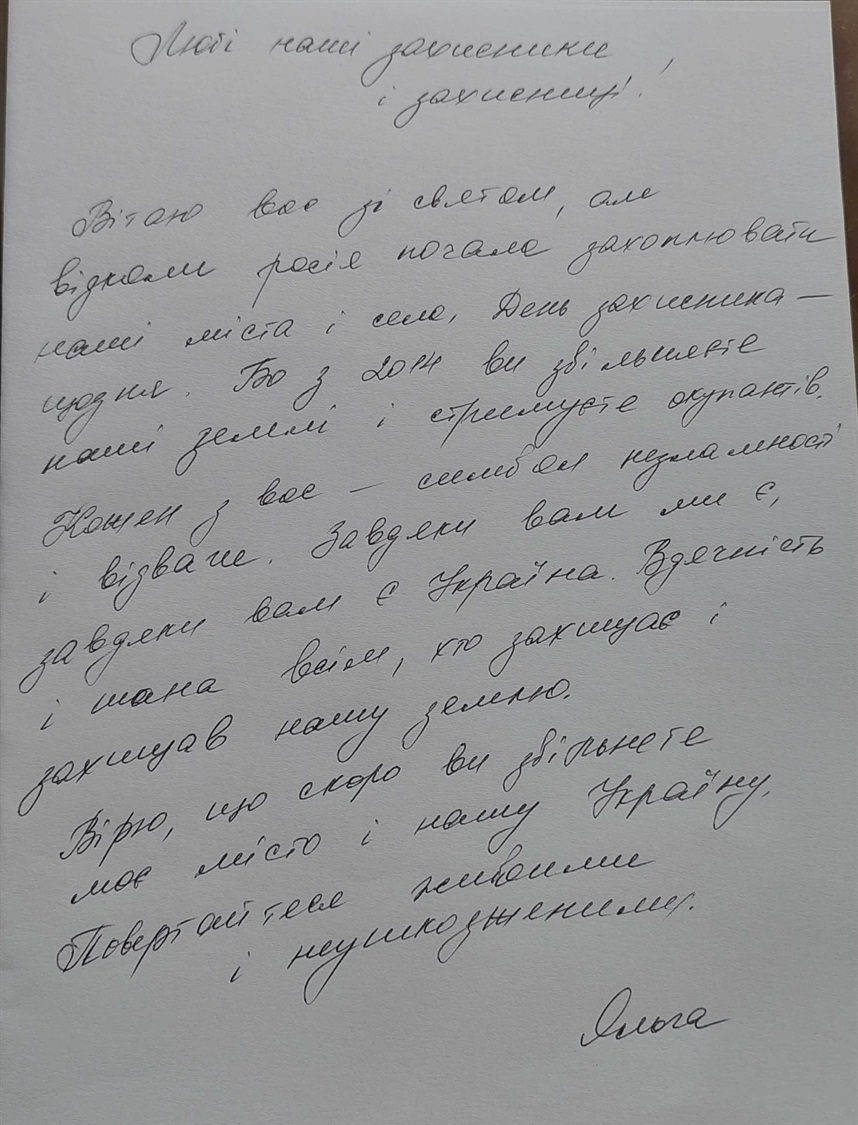 Любі наші захисники
і захисниці!
Вітаю вас зі святом, але
відколи росія почала захоплювати
наші міста і села, День захисника —
щодня. Бо з 2014 ви звільняєте
наші землі і стримуєте окупантів.
Кожен з вас — символ незламності
і відваги. Завдяки вам ми є,
завдяки вам є Україна. Вдячність
і шана всім, хто захищає і
захищав нашу землю.
Вірю, що скоро ви звільните
моє місто і нашу Україну.
Повертайтеся живими
і неушкодженими.
Ольга